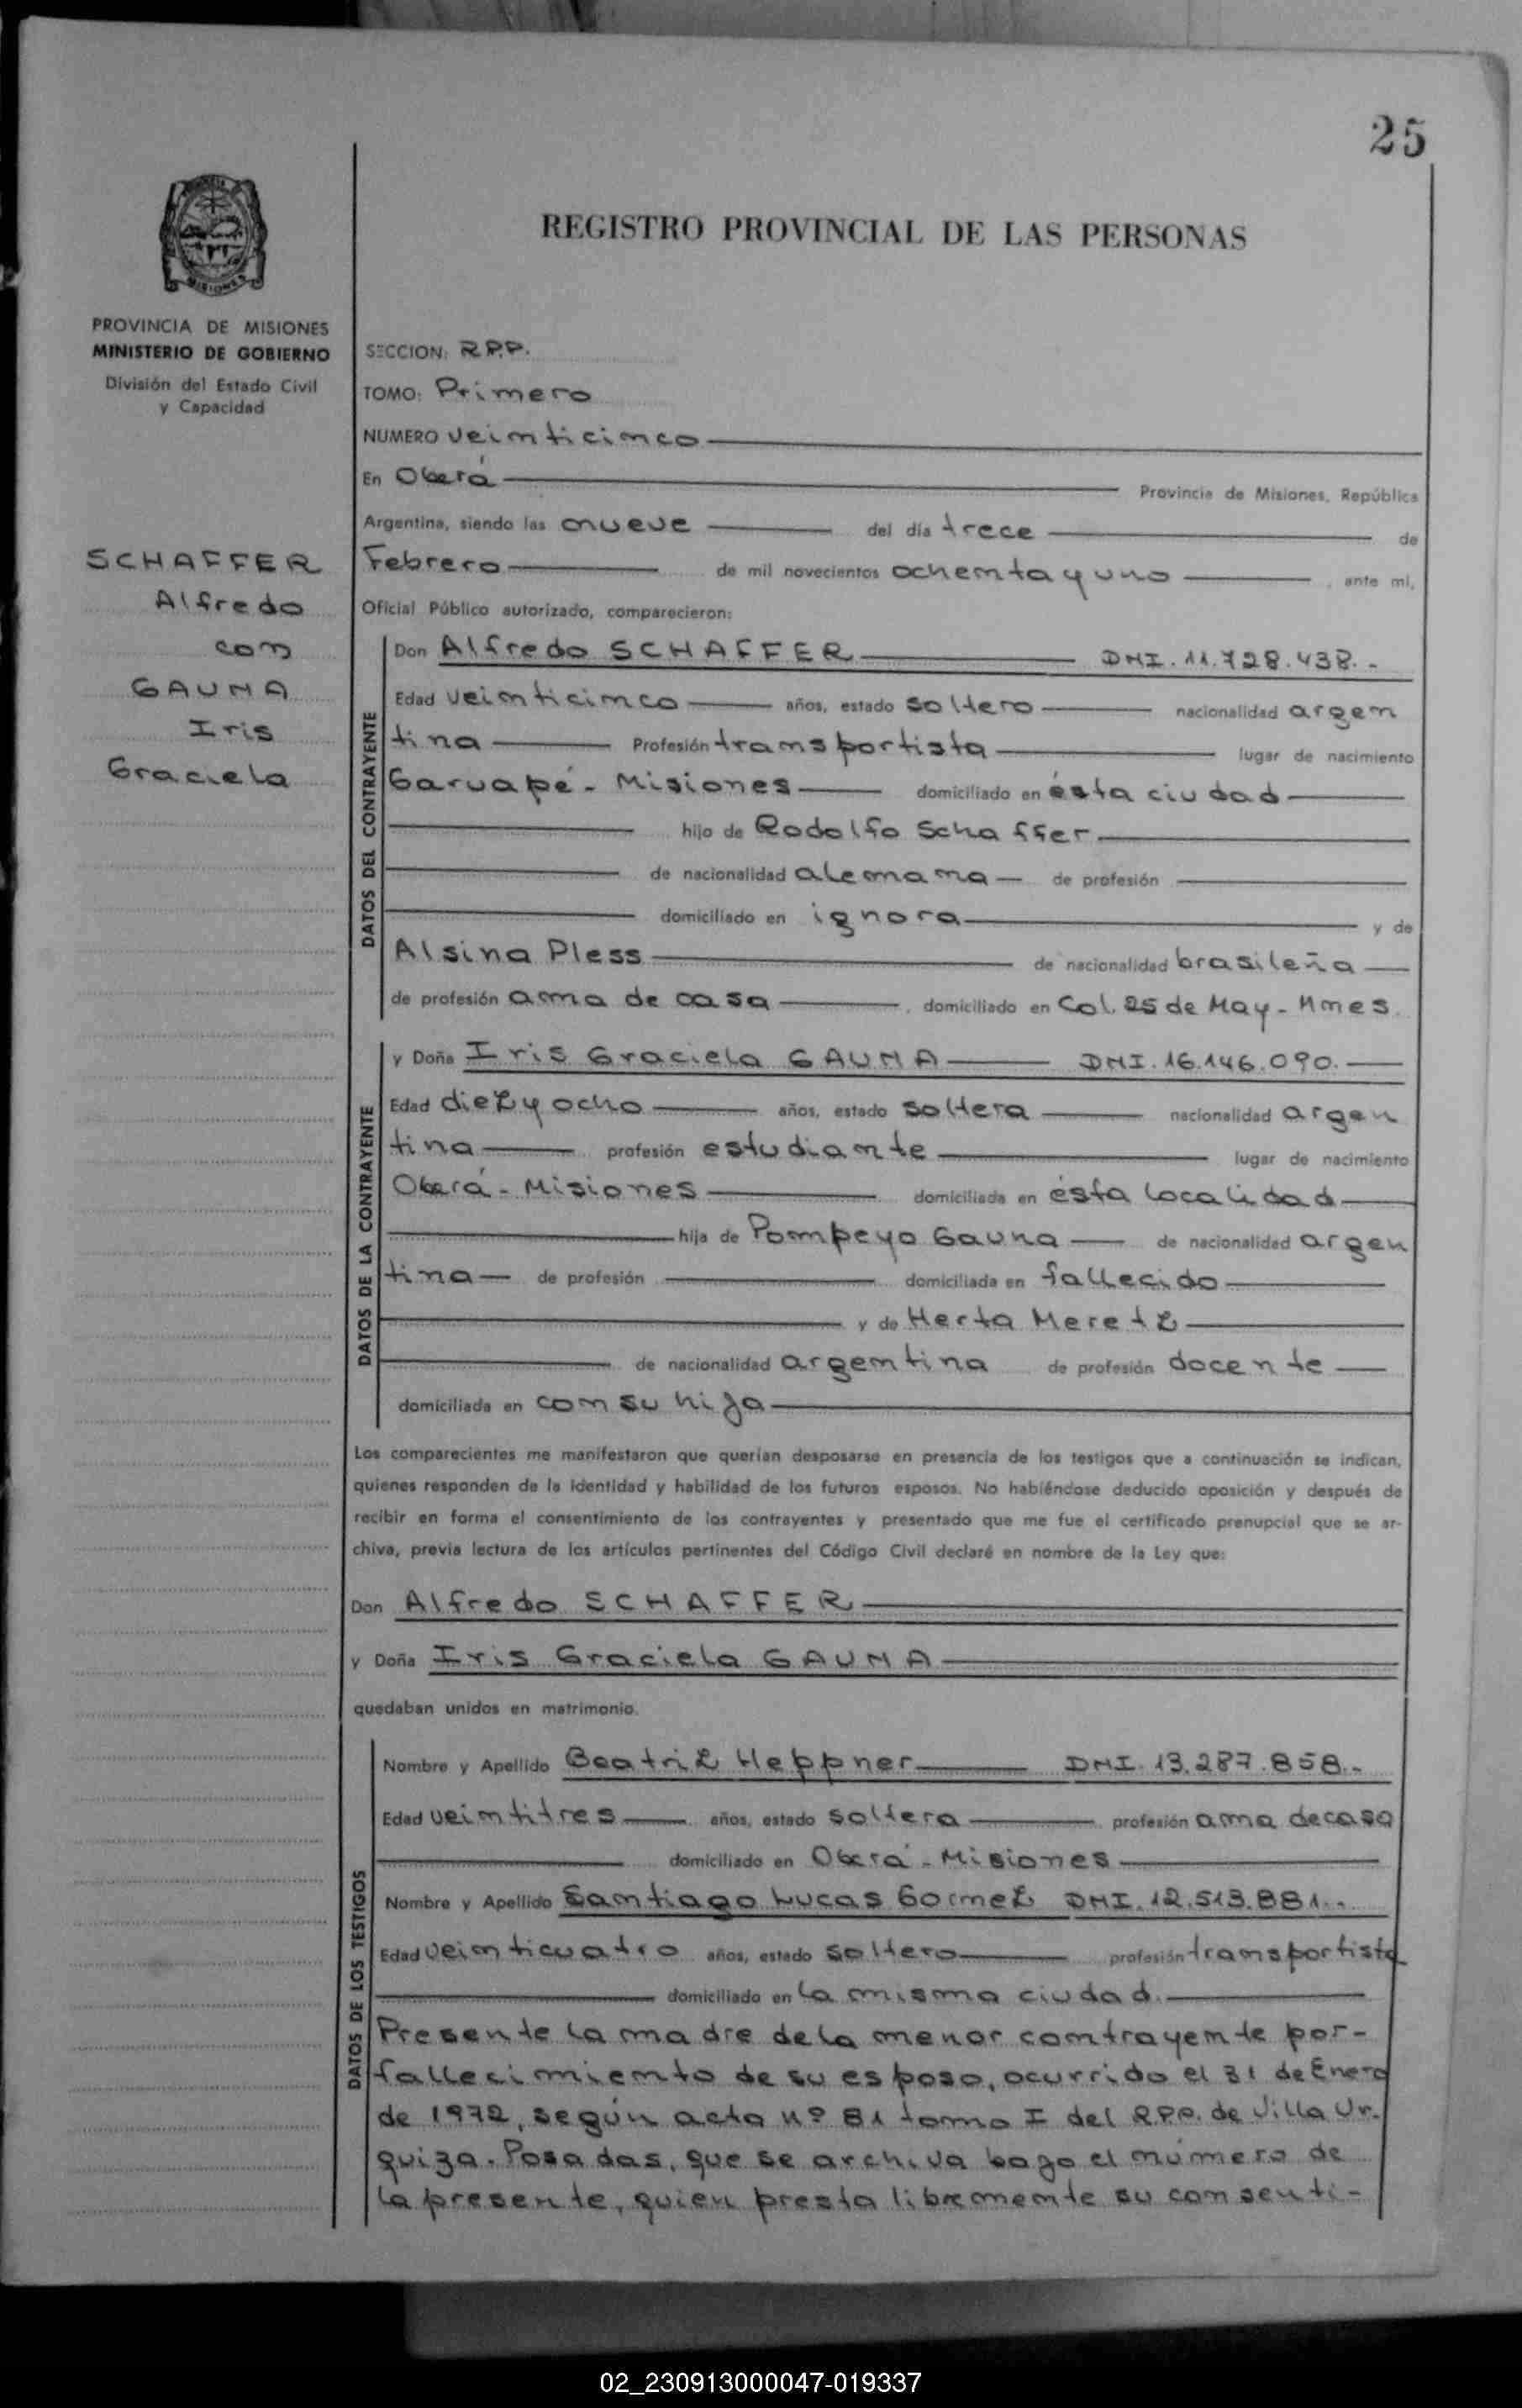 25
REGISTRO PROVINCIAL DE LAS PERSONAS
MISIONES
PROVINCIA DE MISIONES
MINISTERIO DE GOBIERNO
División del Estado Civil
y Capacidad
SCHAFFER
Alfredo
con
GAUNA
Iris
Graciela
SECCION: R.P.P.
TOMO: Primero
NUMERO veinticinco
En Oberá Provincia de Misiones, República
Argentina, siendo las nueve del día trece de
Febrero de mil novecientos ochenta y uno, ante mí,
Oficial Público autorizado, comparecieron:
DATOS DEL CONTRAYENTE
Don Alfredo SCHAFFER DNI. 11.728.438.-
Edad veinticinco años, estado soltero nacionalidad argen
tina Profesión transportista lugar de nacimiento
Garuapé - Misiones domiciliado en ésta ciudad
hijo de Rodolfo Schaffer
de nacionalidad alemana de profesión
domiciliado en ignora y de
Alsina Pless de nacionalidad brasileña
de profesión ama de casa, domiciliado en Col. 25 de May - Mnes.
DATOS DE LA CONTRAYENTE
y Doña Iris Graciela GAUNA DNI. 16.146.090.
Edad diez y ocho años, estado soltera nacionalidad argen
tina profesión estudiante lugar de nacimiento
Oberá - Misiones domiciliada en ésta localidad
hija de Pompeyo Gauna de nacionalidad argen
tina de profesión domiciliada en fallecido
y de Herta Meretz
de nacionalidad argentina de profesión docente
domiciliada en con su hija
Los comparecientes me manifestaron que querían desposarse en presencia de los testigos que a continuación se indican,
quienes responden de la identidad y habilidad de los futuros esposos. No habiéndose deducido oposición y después de
recibir en forma el consentimiento de los contrayentes y presentado que me fue el certificado prenupcial que se ar-
chiva, previa lectura de los artículos pertinentes del Código Civil declaré en nombre de la Ley que:
Don Alfredo SCHAFFER
y Doña Iris Graciela GAUNA
quedaban unidos en matrimonio.
DATOS DE LOS TESTIGOS
Nombre y Apellido Beatriz Heppner DNI. 13.287.858.-
Edad veintitres años, estado soltera profesión ama de casa
domiciliado en Oberá - Misiones
Nombre y Apellido Santiago Lucas DNI. 12.513.881.-
Edad veinticuatro años, estado soltero profesión transportista
domiciliado en la misma ciudad.
Presente la madre de la menor contrayente por-
fallecimiento de su esposo, ocurrido el 31 de Enero
de 1972, según acta nº 81 tomo I del R.P.P. de Villa Ur-
quiza. Posadas, que se archiva bajo el número de
la presente, quien presta libremente su consenti-
02_230913000047-019337